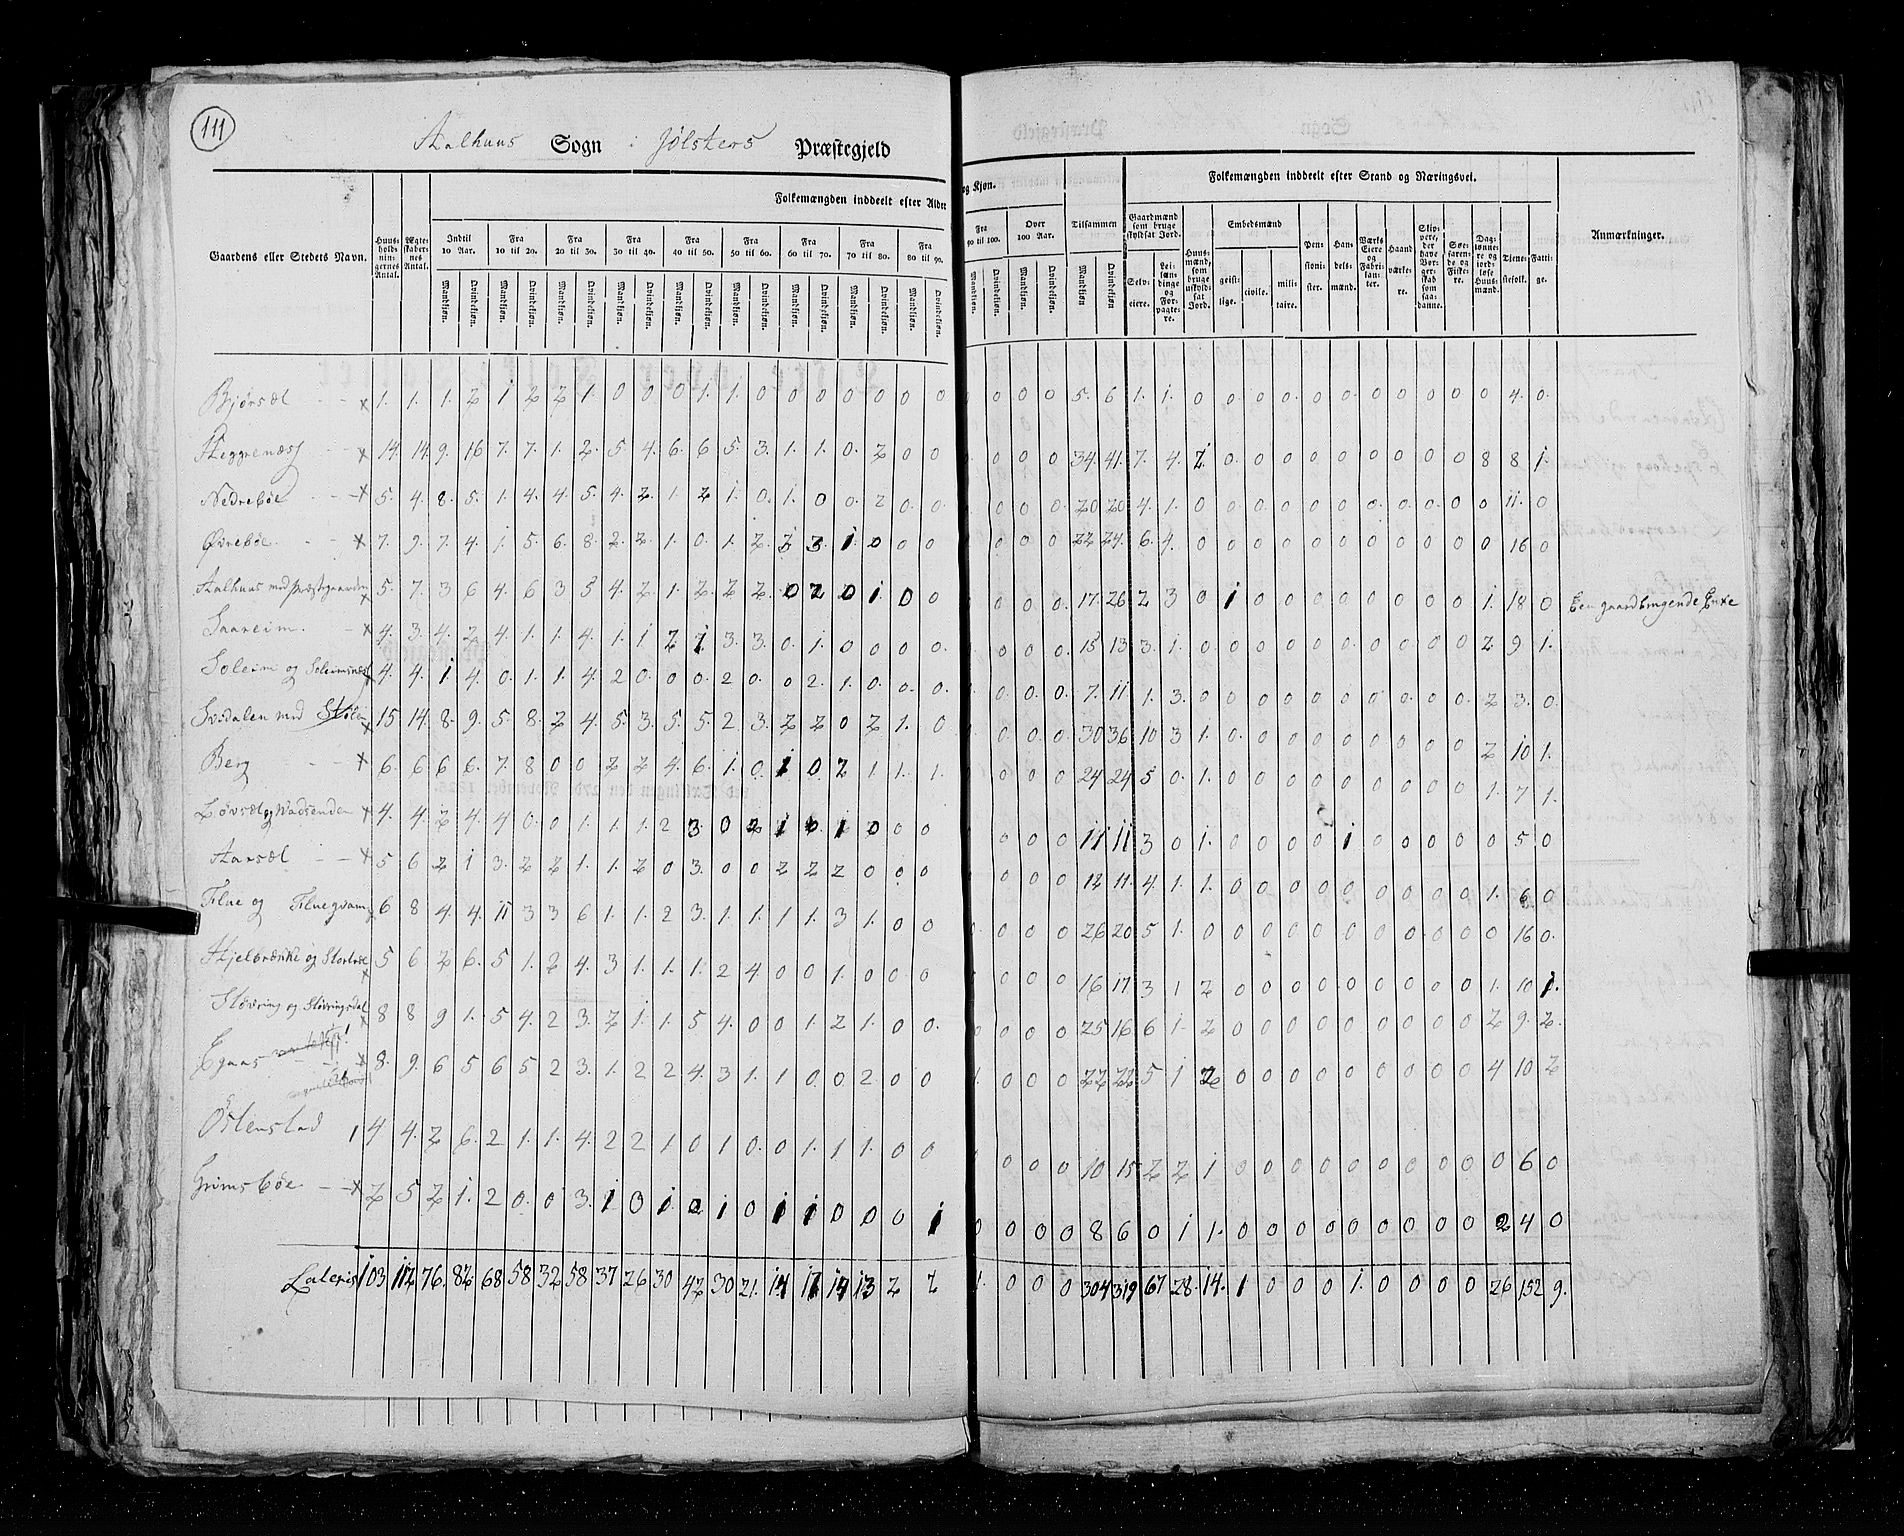 111
Aalhuus Sogn i Jølsters Præstegjeld
Folkemængden inddeelt efter Alder og Kjøn.
Folkemængden inddeelt efter Stand og Næringsvei.
Gaardens eller Stedets Navn.
Huusholdningernes Antal.
Ægteskabernes Antal.
Indtil 10 Aar.
Fra 10 til 20.
Fra 20 til 30.
Fra 30 til 40.
Fra 40 til 50.
Fra 50 til 60.
Fra 60 til 70.
Fra 70 til 80.
Fra 80 til 90.
Fra 90 til 100.
Over 100 Aar.
Tilsammen
Mandkjøn. Qvindekjøn.
Gaardmænd som bruge skyldsat Jord.
Selveiere.
Leilændinge og Forpagtere.
Huusmænd, som bruge uskyldsat Jord.
Embedsmænd
geistlige. civile. militaire.
Pensionister.
Handelsmænd.
Værks Eiere og Fabrikanter.
Haandværkere.
Skippere, der have Borgerskab som saadanne.
Søefarende og Fiskere.
Daglønnere og jordløse Huusmænd.
Tjenestefolk.
Fattige.
Anmærkninger.
Bjørsæl x 1. 1. 1. 2 1 2 2 1. 0 0 0 1. 1. 0 0 0 0 0 0 0 0 0 0 5. 6 1. 1. 0 0. 0 0. 0 0. 0 0 0 0 0 4. 0.
x 14. 14. 9. 16 7. 7. 1. 2. 5. 4. 6. 6 5. 3. 1. 1. 0. 2 0 0 0 0 0 34. 41. 7. 4. 2. 0. 0 0 0 0 0 0 0 0 8 8 1.
Nedrebøe x 5. 4. 8. 5. 1. 4. 4. 5. 4. 2. 1. 2 1. 0. 1. 0 0. 2 0. 0. 0 0 0. 20 20 4. 1. 0 0 0. 0. 0 0 0. 0. 0 0 0 11. 0
Øvrebøe x 7. 9. 7. 4. 1. 5. 6. 8. 2. 2. 1. 0. 1. 2. 3. 3. 1. 0 0 0 0 0 0 22 24. 6. 4. 0 0 0 0 0 0 0 0 0 0 0 16 0
Aalhuus med Præstegaarden x 5. 7. 3 6 4. 6 3 5 4. 2. 1. 2. 2 2. 0 2 0 1. 0 0 0 0. 0. 17. 26 2 3 0 1 0 0 0 0 0 0 0 0 1. 18 0 Een gaardbrugende Enke
Saareim. x 4. 3. 4. 2. 4. 1. 1. 4. 1. 1 2 1 3. 3. 0. 1. 0 0 0 0. 0 0 0. 15 13 3. 1. 0. 0 0 0 0 0 0 0 0 0 2 9 1.
Soleim og Soleimsnæs x 4. 4. 1 4. 0. 1. 1. 4. 2 0. 0 0. 2 0. 0 2. 1. 0. 0. 0. 0. 0. 0. 7. 11 1. 3. 0 0 0 0 0. 0. 0. 0 0. 0. 2 3. 0.
x 15 14. 8. 9. 5. 8. 2 4. 5. 3. 5. 5. 2 3. 2 2 0 2 1. 0 0 0. 0. 30 36 10 3 1. 0. 0 0 0 0 0 0 0 0. 2 10 1.
Berg x 6. 6. 6 6. 7. 8 0 0 2 2 4. 6. 1. 0 1 0. 2 1 1. 1. 0 0 0 24 24 5 0. 1. 0 0 0 0 0 0 0 0 0 1. 7 1.
Løvsæl og Vadsenden x 4. 4. 2 4. 4 0. 0 1. 1. 1. 2 3. 0 2 1 0. 1 0 0 0 0 0 0 11 11 3 0 1. 0 0 0 0 1 0 0 0 0 0 5 0
Aarsæl x 5 6 2 1 3. 2 2 1. 1. 2 0 3. 0 0 2 2 2 0 0 0 0 0 0 12 11. 4. 1. 1. 0 0 0 0 0 0 0 0 0 1. 6 0
Flue og x 6 8 4. 4. 11 3 3 6 1. 1. 2 3. 1. 1. 1 1. 3 1. 0 0 0 0 0 26 20 5 1. 0 0 0 0 0 0 0 0. 0 0 0 16 0.
x 5 6 2 6. 5 1. 2 4. 3 1. 1. 1. 2 4. 0 0 1. 0 0 0. 0 0 0 16 17 3 1 2 0 0 0 0. 0 0 0 0 0 1. 10 1.
Støvring og Støvringsdal x 8 8 9 1. 5 4. 2 3. 2 1. 1. 5 4. 0 0 1. 2 1. 0 0. 0 0 0 25 16 6 1. 2 0 0 0 0 0 0 0 0 0 2 9. 2.
Egaas x 8. 9. 6 5 6 5 2 3. 1. 2 2 4. 3 1. 1 0 0. 2 0 0 1. 0 0 0 22 22 5 1 2 0 0 0 0 0 0 0 0 0 4 10 2
Østenstad 1 4 4. 2 6. 2 1. 1. 4. 2 2 1. 0 1 0. 0 1. 1 1. 0 0 0 0 0 10 15 2 2 1 0 0 0 0 0 0 0 0 0 0 6 0
Grimsbøe x 2 5 2 1. 2 0. 0 3. 1 0 1. 2 1 0 1 1 0 0 0 1 0 0 0 0 8 6 0 1 1. 0 0 0 0 0 0 0 0 0 2 4 0
Lateris 103 112 76. 82 68 58 32 58. 37 26 30 42 30 21. 14 17 14 13 2 2 1. 0 0 0 304 319 67 28. 14. 1 0 0 0 1. 0 0 0 0 26 152 9.